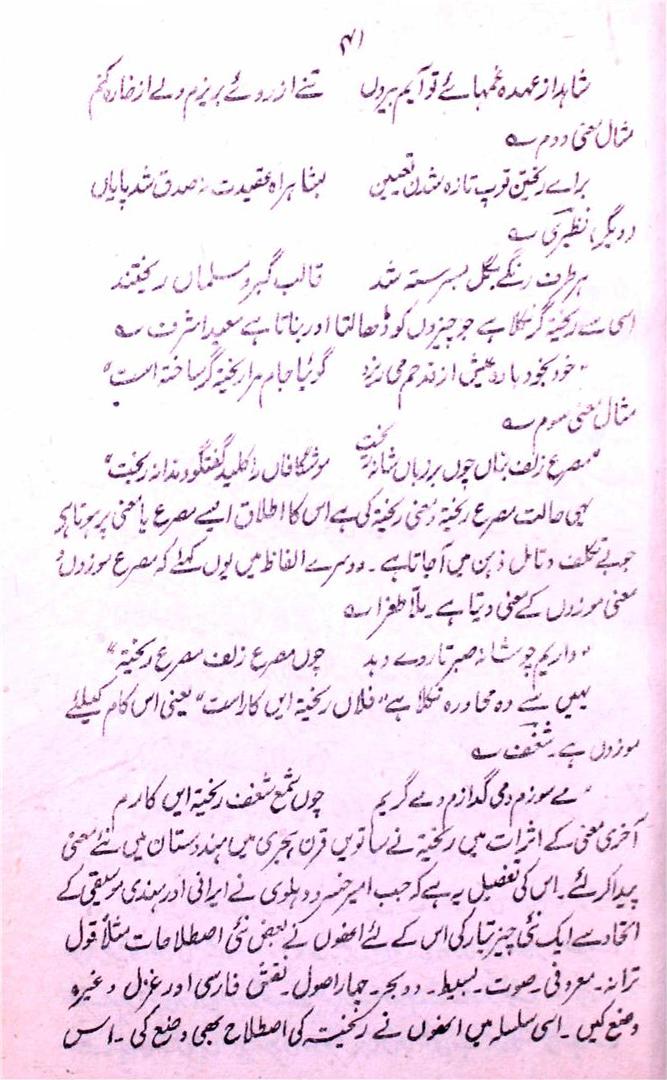 ۴۱
شاہد از عہدہ غمہائے تو آیم بیروں    تنے از روئے بریزم ولے از خارہ کنم
مثال معنی دوم ؎
براے ریختن توپ تازہ شد تعیین    بشاہراہ عقیدت بصدق شد پایاں
و دیگر، نظیری ؎
ہر طرف رنگے بگل سرستہ شد    قالب گبر و مسلماں ریختند
اسی سے ریختہ گر نکلا ہے جو چیزوں کو ڈھالتا اور بناتا ہے سعید اشرف ؎
"خود بخود بادہ عیش از قدحم می ریزد    گوئیا جام مرا ریختہ گر ساختہ است"
مثال معنی سوم ؎
"مصرع زلف بتاں چوں بر زباں شانہ ریخت    موشگافاں را کلید گفتگو دندانہ ریخت"
یہی حالت مصرع ریختہ و معنی ریختہ کی ہے اس کا اطلاق ایسے مصرع یا معنی پر ہوتا ہے
جو بے تکلف و تامل ذہن میں آجاتا ہے۔ دوسرے الفاظ میں یوں کہئے کہ مصرع موزوں و
معنی موزوں کے معنی دیتا ہے۔ ملا طغرا ؎
"داریم چو شانہ صبر تا روے دہد    چوں مصرع زلف مصرع ریختۂ"
یہیں سے وہ محاورہ نکلا ہے "فلاں ریختہ ایں کار است" یعنی اس کام کیلئے
موزوں ہے۔ شغف ؎
"مے سوزم و می گدازم و مے گریم    چوں شمع شغف ریختہ ایں کارم
آخری معنی کے اثرات میں ریختہ نے ساتویں قرن ہجری میں ہندستان میں نئے معنی
پیدا کر لئے۔ اس کی تفصیل یہ ہے کہ جب امیر خسرو دہلوی نے ایرانی اور ہندی موسیقی کے
اتحاد سے ایک نئی چیز تیار کی اس کے لئے انھوں نے بعض نئی اصطلاحات مثلاً قول
ترانہ۔ معروفی۔ صوت۔ بسیط۔ دوبحر۔ چہار اصول۔ نقش فارسی اور غزل وغیرہ
وضع کیں۔ اسی سلسلہ میں انھوں نے ریختہ کی اصطلاح بھی وضع کی۔ اس